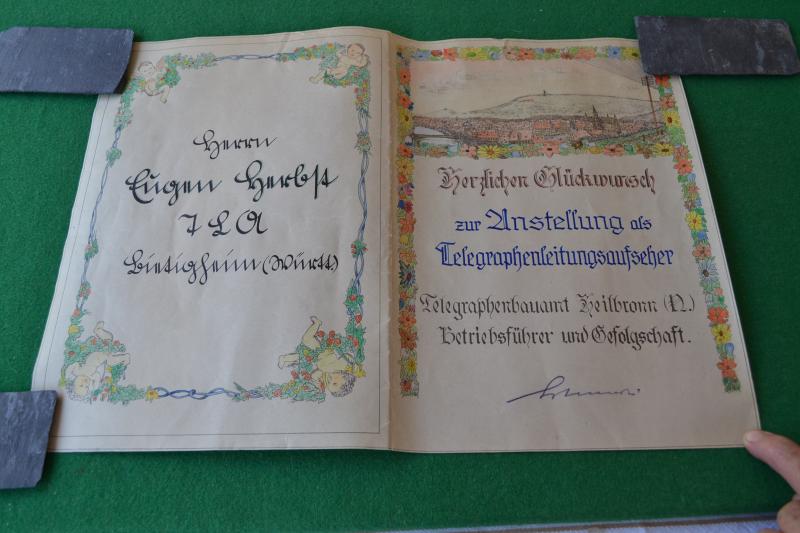 Herrn
Eugen Herbst
T L A
Bietigheim (Württ)
Herzlichen Glückwunsch
zur Anstellung als
Telegraphenleitungsaufseher
Telegraphenbauamt Heilbronn (N.)
Betriebsführer und Gefolgschaft.